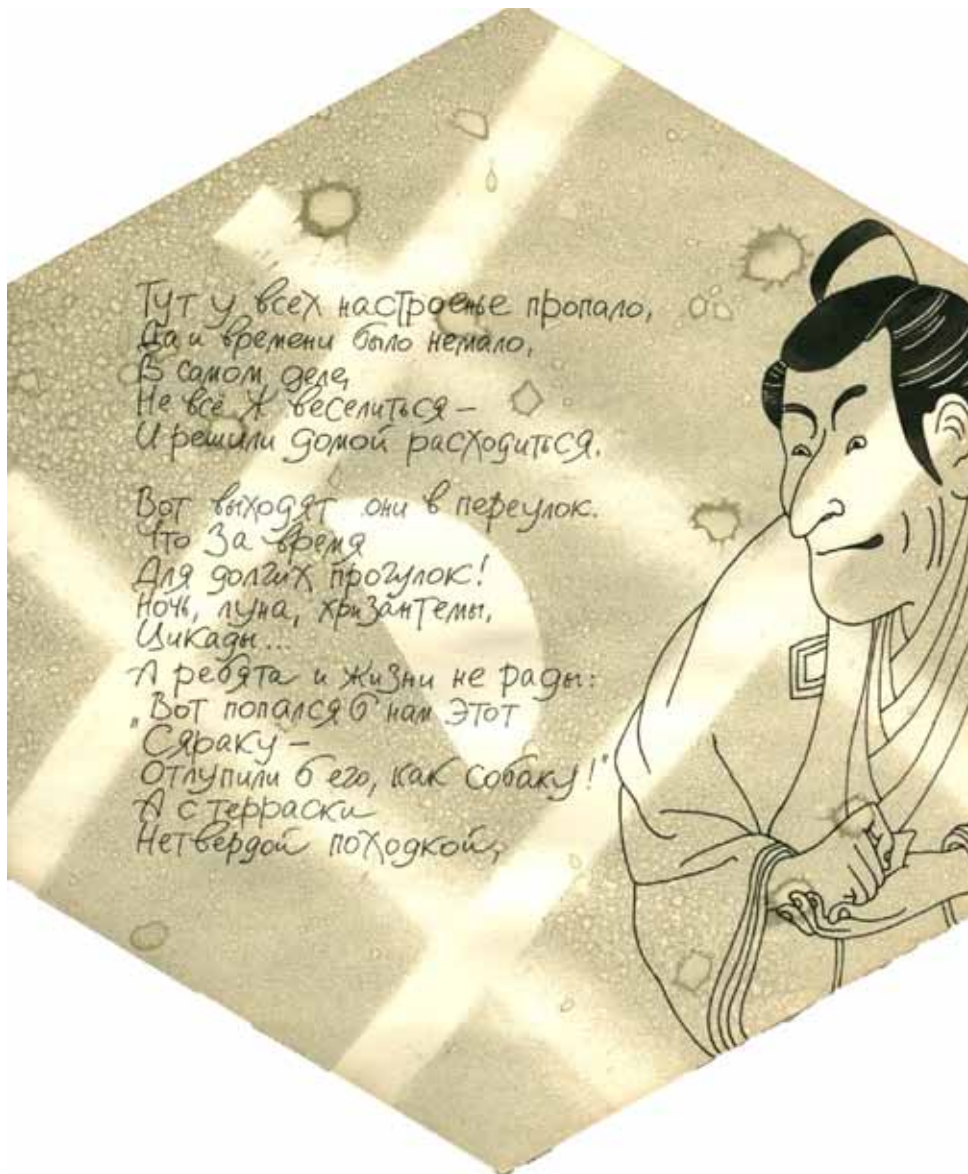 Тут у всех настроенье пропало,
Да и времени было немало,
В самом деле,
Не всё ж веселиться –
И решили домой расходиться.
Вот выходят они в переулок.
Что за время
Для долгих прогулок!
Ночь, луна, хризантемы,
Цикады...
А ребята и жизни не рады:
„Вот попался б нам этот
Сяраку –
Отлупили б его, как собаку!"
А с терраски
Нетвердой походкой,